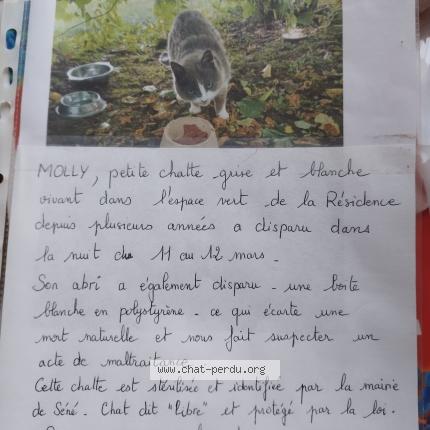 MOLLY, petite chatte grise et blanche
vivant dans l'espace vert de la Résidence
depuis plusieurs années a disparu dans
la nuit du 11 au 12 mars.
Son abri a également disparu - une boîte
blanche en polystyrène - ce qui écarte une
mort naturelle et nous fait suspecter un
acte de maltraitance
www.chat-perdu.org
Cette chatte est stérilisée et identifiée par la mairie
de Séné. Chat dit "libre" et protégé par la loi.